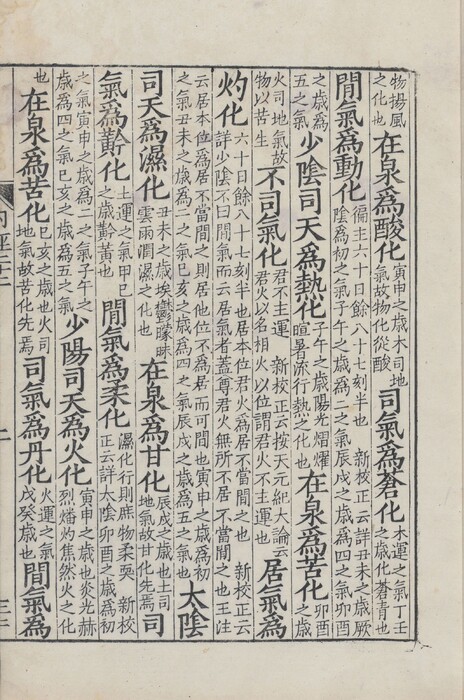 物揚風之化也在泉爲酸化寅申之歲木司地氣故物化從酸司氣爲蒼化木運之氣丁壬之歲化蒼青也
閒氣爲動化偏主六十日餘八十七刻半也 新校正云詳丑未之歲厥陰爲初之氣子午之歲爲二之氣辰戌之歲爲四之氣卯酉
之歲爲五之氣少陰司天爲熱化子午之歲陽光熠燿暄暑流行熱之化也在泉爲苦化卯酉之歲
火司地氣故物以苦生不司氣化君不主運 新校正云按天元紀大論云君火以名相火以位謂君火不主運也居氣爲
灼化六十日餘八十七刻半也居本位君火爲居不當閒之也 新校正云詳少陰不曰閒氣而云居氣者蓋尊君火無所不居不當閒之也王注
云居本位爲居不當閒之則居他位不爲居而可閒也寅申之歲爲初之氣丑未之歲爲二之氣巳亥之歲爲四之氣辰戌之歲爲五之氣也太陰
司天爲濕化丑未之歲埃鬱曚昧雲雨潤濕之化也在泉爲甘化辰戌之歲也土司地氣故甘化先焉司
氣爲黅化土運之氣甲巳之歲黅黃也閒氣爲柔化濕化行則庶物柔耎 新校正云詳太陰卯酉之歲爲初
之氣寅申之歲爲二之氣子午之歲爲四之氣巳亥之歲爲五之氣少陽司天爲火化寅申之歲也炎光赫烈燔灼焦然火之化
也在泉爲苦化巳亥之歲也火司地氣故苦化先焉司氣爲丹化火運之氣戊癸歲也閒氣爲